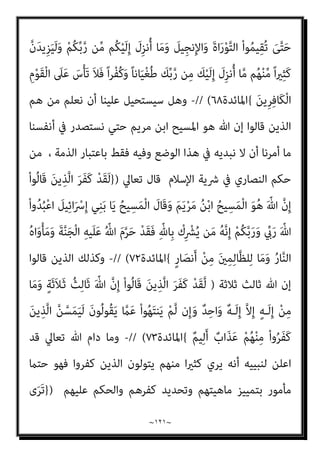 حَتَّىَ تُقِيمُواْ التَّوْرَاةَ وَالإِنجِيلَ وَمَا أُنزِلَ إِلَيْكُم مِّن رَّبِّكُمْ وَلَيَزِيدَنَّ
كَثِيراً مِّنْهُم مَّا أُنزِلَ إِلَيْكَ مِن رَّبِّكَ طُغْيَاناً وَكُفْراً فَلاَ تَأْسَ عَلَى الْقَوْمِ
الْكَافِرِينَ }المائدة٦٨) -// وهل سيستحيل علينا أن نعلم من هم
الذين قالوا إن الله هو المسيح ابن مريم حتي نستصدر في أنفسنا
ما أمرنا أن لا نبديه في هذا الوضع وفيه فقط باعتبار الذمة ، من
حكم النصاري في شرية الإسلام قال تعالي ({لَقَدْ كَفَرَ الَّذِينَ قَالُواْ
إِنَّ اللّهَ هُوَ الْمَسِيحُ ابْنُ مَرْيَمَ وَقَالَ الْمَسِيحُ يَا بَنِي إِسْرَائِيلَ اعْبُدُواْ
اللّهَ رَبِّي وَرَبَّكُمْ إِنَّهُ مَن يُشْرِكْ بِاللّهِ فَقَدْ حَرَّمَ اللّهُ عَلَيهِ الْجَنَّةَ وَمَأْوَاهُ
النَّارُ وَمَا لِلظَّالِمِينَ مِنْ أَنصَارٍ }المائدة٧٢) -// وكذلك الذين قالوا
إن الله ثالث ثلاثة ( لَّقَدْ كَفَرَ الَّذِينَ قَالُواْ إِنَّ اللّهَ ثَالِثُ ثَلاَثَةٍ وَمَا
مِنْ إِلَـهٍ إِلاَّ إِلَـهٌ وَاحِدٌ وَإِن لَّمْ يَنتَهُواْ عَمَّا يَقُولُونَ لَيَمَسَّنَّ الَّذِينَ
كَفَرُواْ مِنْهُمْ عَذَابٌ أَلِيمٌ }المائدة٧٣) -// وما دام الله تعالي قد
اعلن لنبييه أنه يري كثيرا منهم يتولون الذين كفروا فهو حتما
مأمور بتمييز ماهيتهم وتحديد كفرهم والحكم عليهم ({تَرَى
~١٢١~